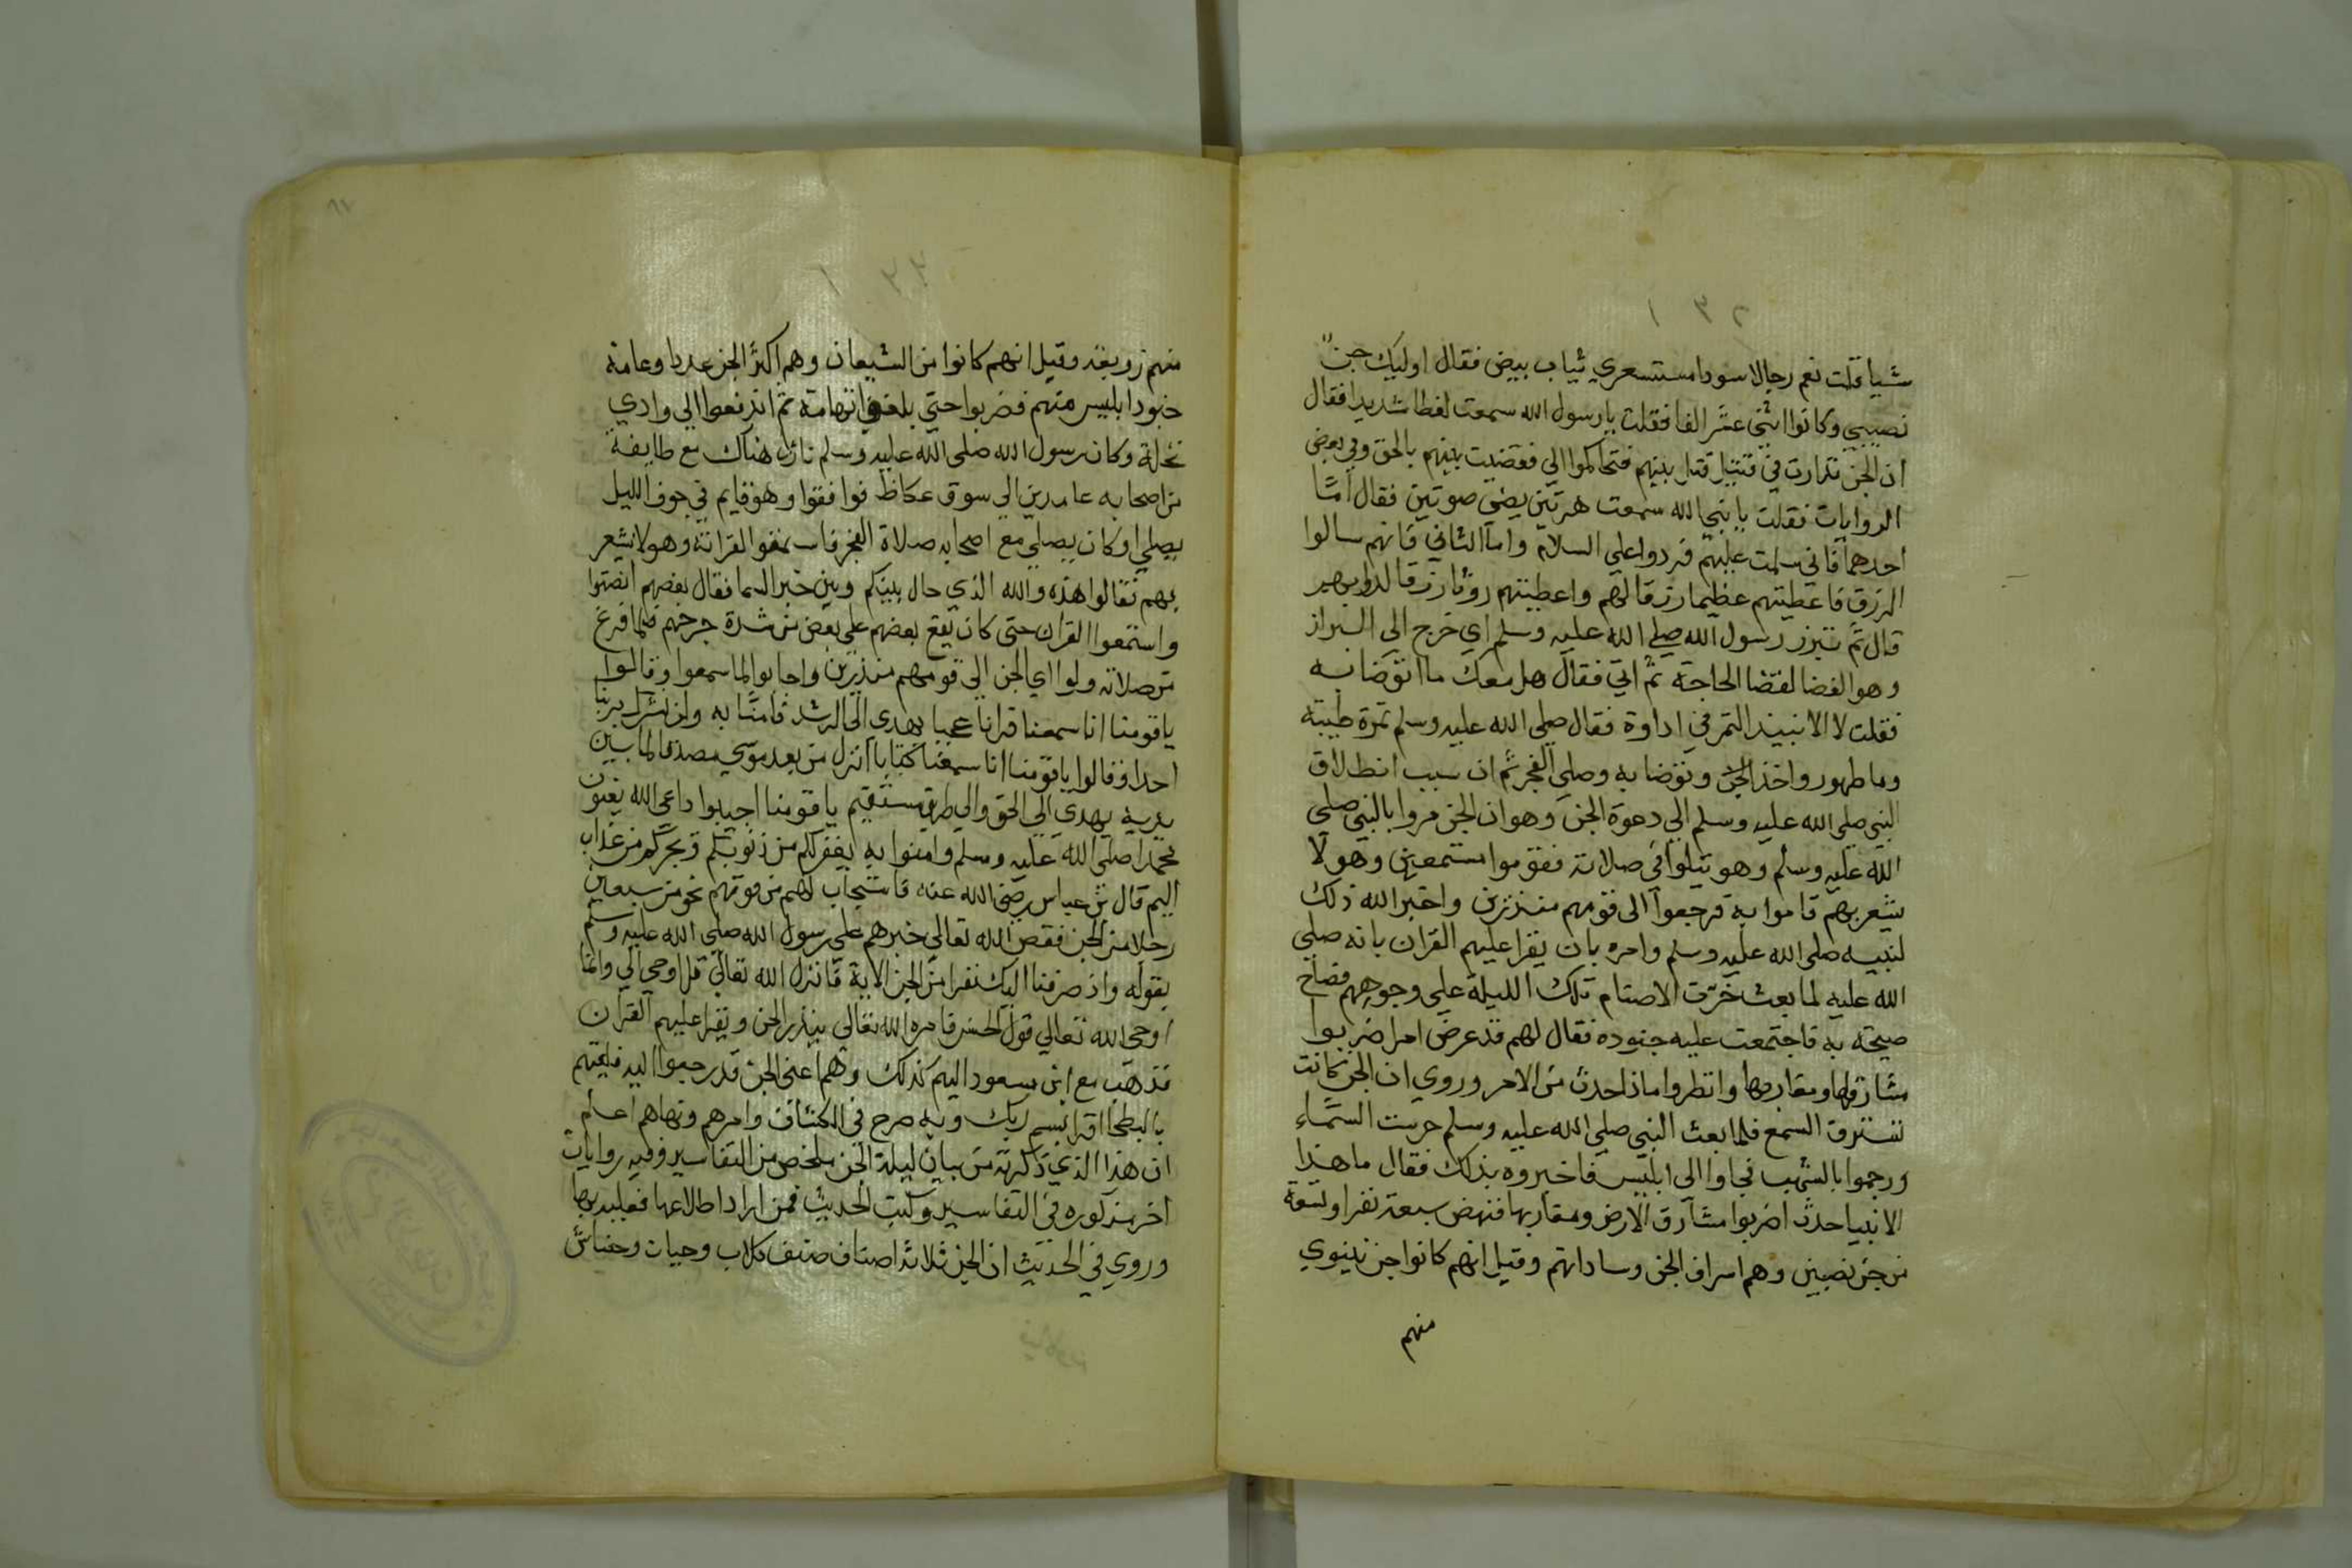 شيا قلت نعم رجالا سودا مستسعري ثياب بيض فقال اوليك جن
نصيبي وكانوا اثنى عشر الفا فقلت يا رسول الله سمعت لغطا شديدا فقال
ان الجن تدارت في قتيل قتل بينهم فتحاكموا الي فقضيت بينهم بالحق وفي بعض
الروايات فقلت يا نبي الله سمعت هرتين يعني صوتين فقال اما
احدهما فاني سلمت عليهم فردوا علي السلام واما الثاني فانهم سالوا
الرزق فاعطيتهم عظيما رزقا لهم واعطيتهم روثا رزقا لدوابهم
قال ثم تبرز رسول الله صلى الله عليه وسلم اي خرج الي البراز
وهو الفضا لقضا الحاجة ثم اتي فقال هل معك ما اتوضا به
فقلت لا الا نبيذ التمر في اداوة فقال صلى الله عليه وسلم تمرة طيبة
وما طهور واخذ وتوضا به وصلي الفجر ثم ان سبب انطلاق
النبي صلى الله عليه وسلم الي دعوة الجن وهو ان الجن مروا بالنبي صلى
الله عليه وسلم وهو يتلوا في صلاته فقوموا مستمعين وهو لا
يشعر بهم قاموا به فرجعوا الى قومهم منذرين واخبر الله ذلك
لنبيه صلى الله عليه وسلم وامره بان يقرا عليهم القران بانه صلي
الله عليه لما بعث خرت الاصنام تلك الليلة علي وجوههم فصاح
صيحة به فاجتمعت عليه جنوده فقال لهم قد عرض امر اضربوا
مشارقها ومغاربها وانظروا ماذا حدث من الامر وروي ان الجن كانت
تسترق السمع فلما بعث النبي صلي الله عليه وسلم حرست السماء
ورجموا بالشهب فجاوا الى ابليس فاخبروه بذلك فقال ما هذا
الا نبيا حدث اضربوا مشارق الارض ومغاربها فنهض سبعة نفر او تسعة
من جن نصيبن وهم اسراف الجن وساداتهم وقيل انهم كانوا جن نينوي
منهم
منهم زوبعه وقيل انهم كانوا من الشيعان وهم اكثر الجن عددا وعامة
جنود ابليس منهم فضربوا حتي بلغوا تهامة ثم اندفعوا الي وادي
نخلة وكان رسول الله صلى الله عليه وسلم نازل هناك مع طايفة
من اصحابه عامدين الي سوق عكاظ فوافقوا وهو قايم في جوف الليل
يصلي او كان يصلي مع اصحابه صلاة الفجر فاستمعوا القرانة وهو لا يشعر
بهم فقالوا هذه والله الذي حال بينكم وبين خبر السما فقال بعضهم انصتوا
واستمعوا القران حتى كان يقع بعضهم على بعض من شدة حرصهم فلما فرغ
من صلاته ولوا اي الجن الى قومهم منذرين واجابوا لما سمعوا وقالوا
يا قومنا انا سمعنا قرانا عجبا يهدي الي الرشد فامنا به ولن نشرك بربنا
احدا وقالوا يا قومنا انا سمعنا كتابا انزل من بعد موسي مصدقا لما بين
يديه يهدي الي الحق والي طريق مستقيم يا قومنا اجيبوا داعي الله يعنون
محمدا صلى الله عليه وسلم وامنوا به يغفر لكم من ذنوبكم ويجركم من عذاب
اليم قال بن عباس رضي الله عنه فاستجاب لهم من قومهم نحو من سبعين
رجلا من الجن فقص الله تعالي خبرهم علي رسول الله صلى الله عليه وسلم
بقوله واذ صرفنا اليك نفرا من الجن الاية فانزل الله تعالي قل اوحي الي وانما
اوحى الله تعالي قول الجن فامره الله تعالي ينذر الجن ويقرا عليهم القران
فذهب مع ابن مسعود اليهم كذلك وهم اعني الجن قد رجعوا اليه فلقيهم
بالبطحا اقرا بسم ربك وبه صرح في الكشاف وامرهم ونهاهم اعلم
ان هذا الذي ذكرته من بيان ليلة الجن ملخص من التفاسير وفيه روايات
اخر مذكوره في التفاسير وكتب الحديث فمن اراد اطلاعها فعليه بها
وروي في الحديث ان الجن ثلاثة اصناف صنف كلاب وحيات وحشاش